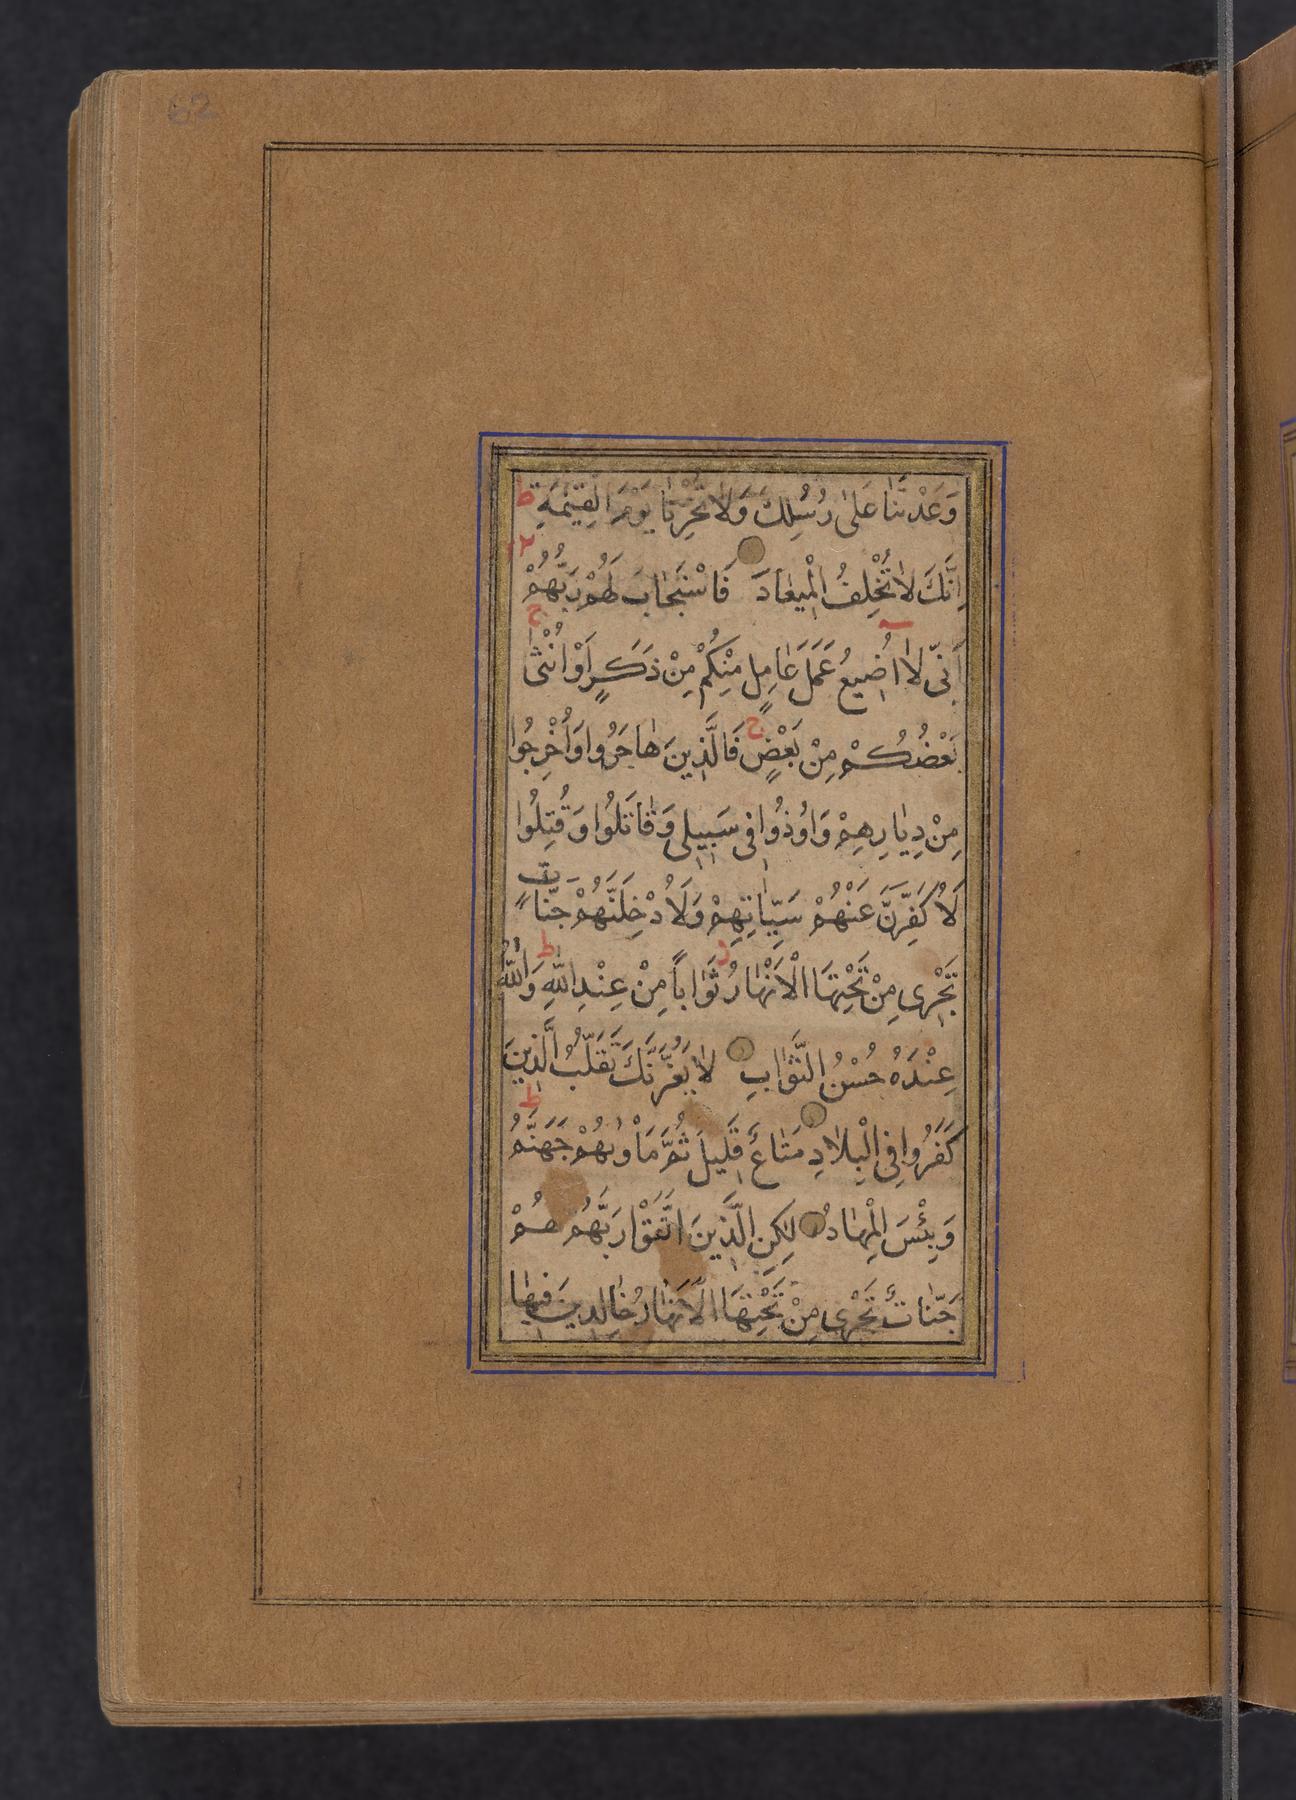 62
وَعَدْتَنَا عَلٰى رُسُلِكَ وَلَا تُخْزِنَا يَوْمَ الْقِيٰمَةِ ط
اِنَّكَ لَا تُخْلِفُ الْمِيعَادَ فَاسْتَجَابَ لَهُمْ رَبُّهُمْ
اَنِّى لَا اُضِيعُ عَمَلَ عَامِلٍ مِنْكُمْ مِنْ ذَكَرٍ اَوْ اُنْثٰى ج
بَعْضُكُمْ مِنْ بَعْضٍ ج فَالَّذِينَ هَاجَرُوا وَاُخْرِجُوا
مِنْ دِيَارِهِمْ وَاُوذُوا فِى سَبِيلِى وَقَاتَلُوا وَقُتِلُوا
لَاُكَفِّرَنَّ عَنْهُمْ سَيِّاٰتِهِمْ وَلَاُدْخِلَنَّهُمْ جَنَّاتٍ
تَجْرِى مِنْ تَحْتِهَا الْاَنْهَارُ ثَوَابًا مِنْ عِنْدِ اللّٰهِ ط وَاللّٰهُ
عِنْدَهُ حُسْنُ الثَّوَابِ لَا يَغُرَّنَّكَ تَقَلُّبُ الَّذِينَ
كَفَرُوا فِى الْبِلَادِ مَتَاعٌ قَلِيلٌ ثُمَّ مَاْوٰيهُمْ جَهَنَّمُ ط
وَبِئْسَ الْمِهَادُ لٰكِنِ الَّذِينَ اتَّقَوْا رَبَّهُمْ لَهُمْ
جَنَّاتٌ تَجْرِى مِنْ تَحْتِهَا الْاَنْهَارُ خَالِدِينَ فِيهَا